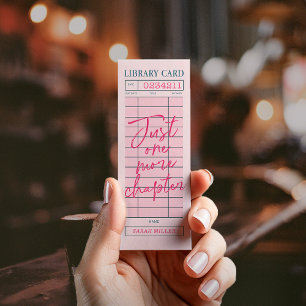 LIBRARY CARD
0234211
Just
one
more
chapter
NAME
SARAH MILLER